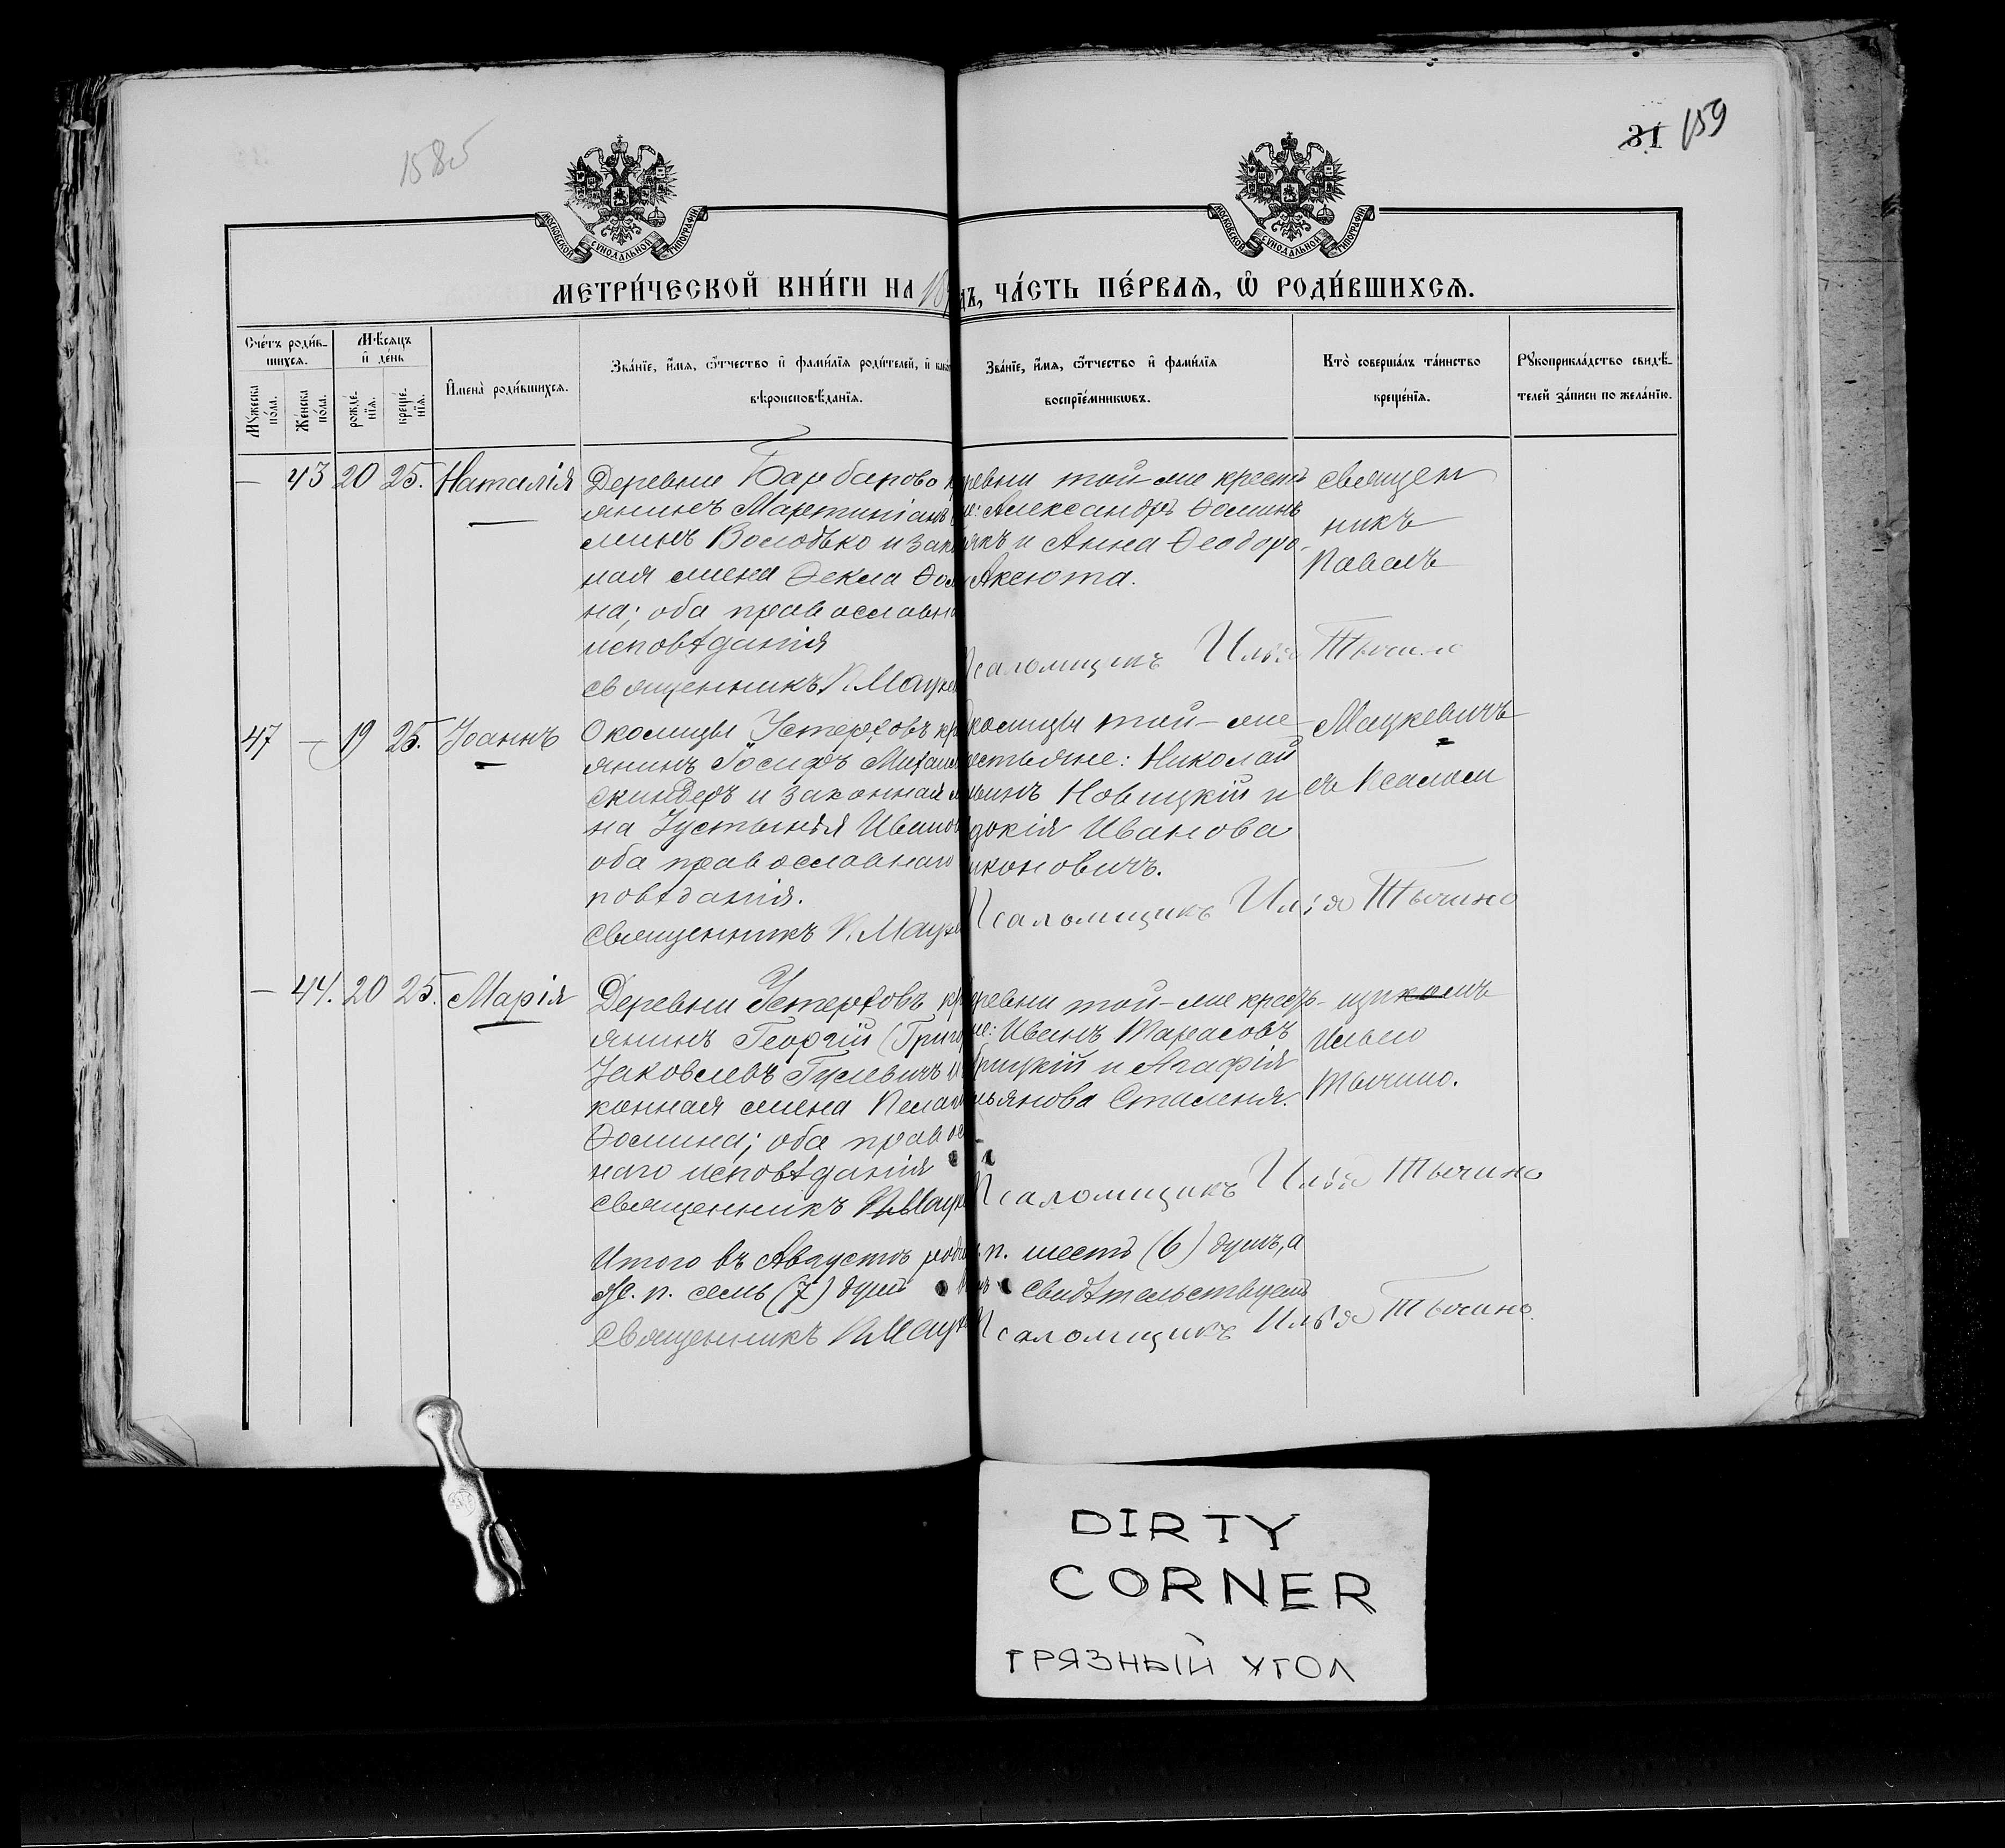 158об
31 159
МОСКОВСКОЙ СѴНОДАЛЬНОЙ ТИПОГРАФІИ
МОСКОВСКОЙ СѴНОДАЛЬНОЙ ТИПОГРАФІИ
МЕТРИ́ЧЕСКОЙ КНИ́ГИ НА 18
ЧА́СТЬ ПЕ́РВАЯ, Ѡ҆ РОДИ́ВШИХСЯ.
Сче́тъ роди́в-
шихся.
Мꙋжеска по́ла.
Же́нска по́ла.
Мѣсяцъ
и҆ де́нь
рожде́-
нїя.
креще́-
нїя.
И҆мена̀ роди́вшихся.
Зва́нїе, и҆́мя, ѻ҆́тчество и҆ фами́лїя роди́телей, и҆
вѣроисповѣ́данїя.
Зва́нїе, и҆́мя, ѻ҆́тчество и҆ фами́лїя
воспрїе́мникωвъ.
Кто̀ соверша́лъ та́инство
креще́нїя.
Рꙋкоприкла́дство свидѣ́-
телей за́писи по жела́нїю.
— 43 20 25. Наталія
Деревни Барбарово
янинъ Мартиніанъ
минъ Володько и зак
ная жена Ѳекла Ѳом
на; оба православн
исповѣданія
Священникъ П. Мацке
ревни той-же крест
Александръ Ѳоминъ
якъ и Анна Ѳеодоро-
Аксюта.
Псаломщикъ Илья Тычино
Священ
никъ
Павелъ
47 — 19 25. Іоаннъ
Околицы Устерховъ кр
янинъ Іосифъ Михаил
Скиндеръ и законная
на Іустинія Иванов
оба православнаго
повѣданія.
Священникъ П. Мацке
колицы той-же
естьяне: Николай
Новицкій и
докія Иванова
коновичъ.
Псаломщикъ Илья Тычино
Мацкевичъ
съ Псалом
— 44. 20 25. Марія
Деревни Устерховъ кр
янинъ Георгій (Григо
Іаковлевъ Гулевичъ и
конная жена Пелаг
Ѳомина; оба правос
наго исповѣданія
Священникъ П. Мацке
ревни той-же крест-
не: Иванъ Тарасовъ
рицкій и Агафія
льянова
Псаломщикъ Илья Тычино
щикомъ
Ильею
Тычино.
Итого въ Августѣ роди
ж. п. семь (7) душъ
Священникъ П. Мацке
п. шесть (6) душъ, а
свидѣтельствуемъ
Псаломщикъ Илья Тычино.
DIRTY
CORNER
ГРЯЗНЫЙ УГОЛ